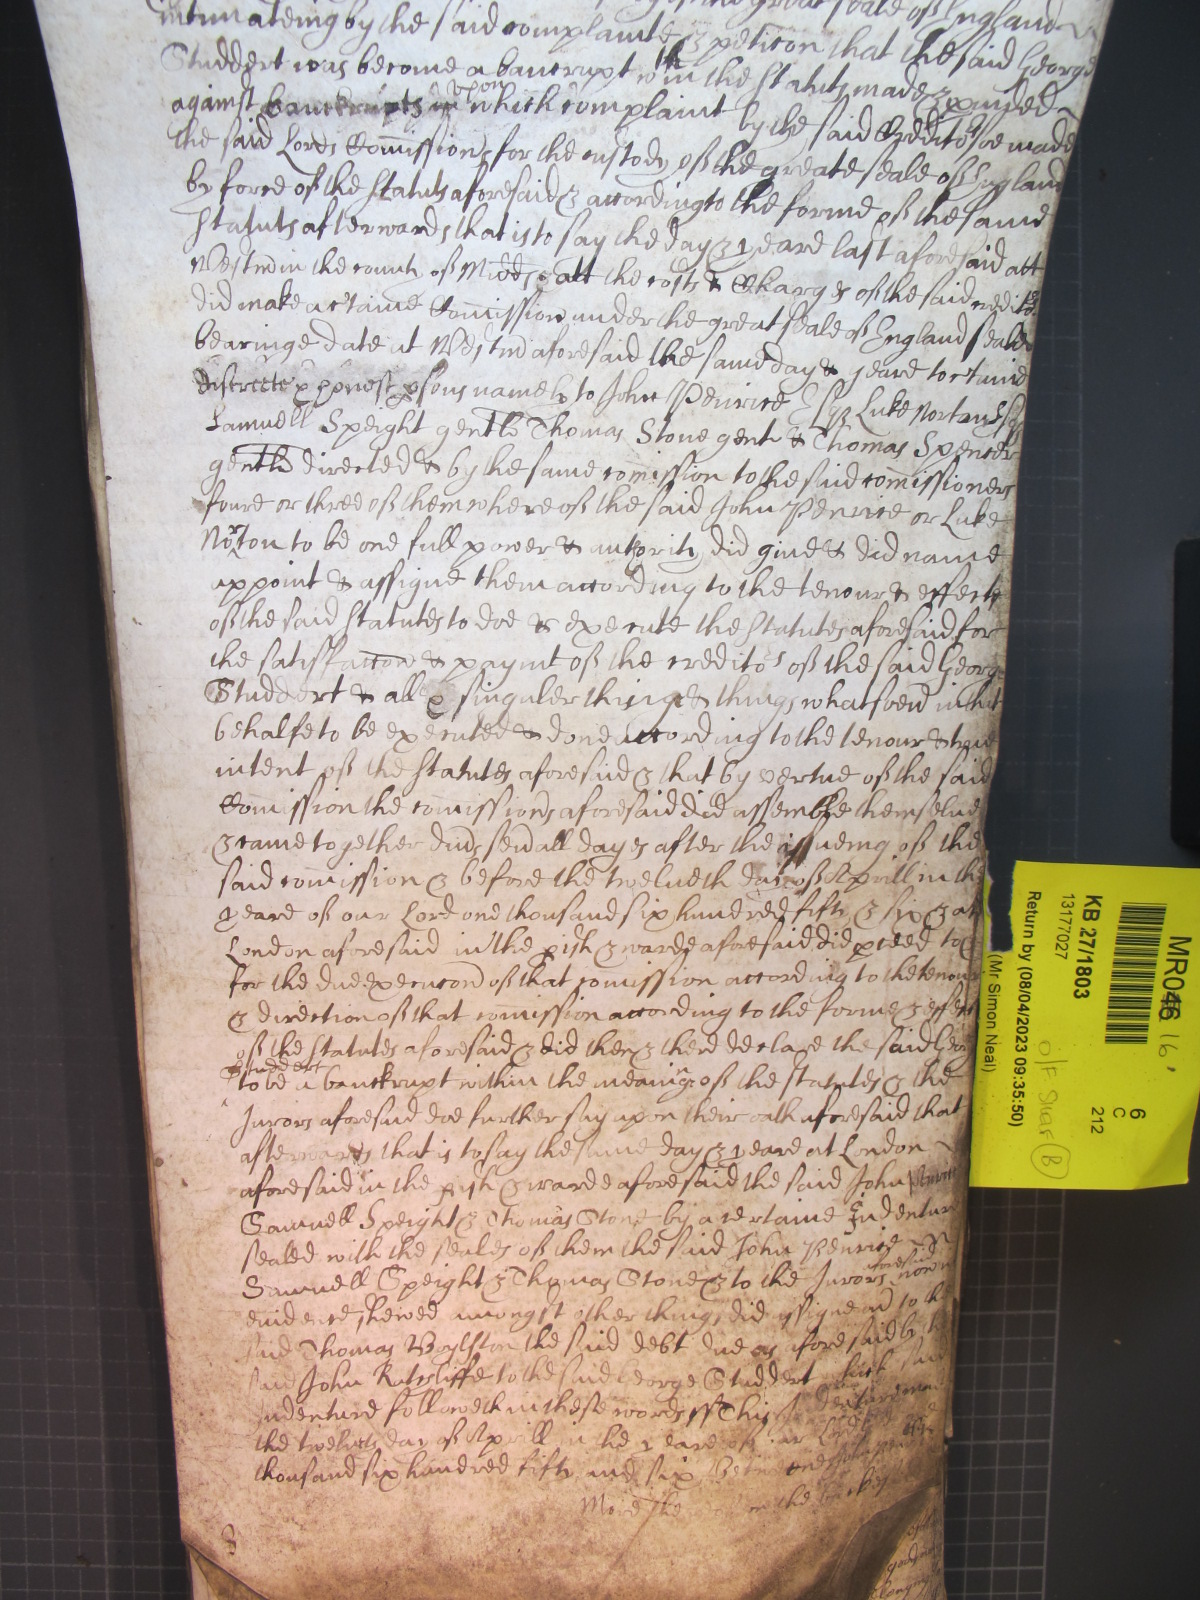 intimateing by the said complainte & peticon that the said George
Studdert was become a bancrupt wthin the Statuts made & pvided
against banckrupts upon which complaint by the said Creditors soe made
the said Lords Comissioners for the custody of the greate seale of England
by force of the Statuts aforesaid & according to the forme of the same
Statuts afterwards that is to say the day & yeare last aforesaid att
Westmin the county of Midds & att the costs & Charges of the said creditors
did make a certaine Comission under the great seale of England sealed
bearinge date at Westm aforesaid the same day & yeare to certaine
discreete & honest psons namely to John Penrice Esqr Luke Norton Esqr
Samuell Speight gentle Thomas Stone gent & Thomas Spencer
gentle directed & by the same comission to the said comissioners
foure or three of them whereof the said John Penrice or Luke
Norton to be one full power & authority did give & did name
appoint & assigne them according to the tenour & effecte
of the said Statutes to doe & execute the Statutes aforesaid for
the satisfaccon & paymt of the creditors of the said George
Studdert & all & singuler thinge & things whatsoevr in that
behalfe to be executed & done according to the tenour & true
intent of the Statutes aforesaid & that by vertue of the said
Comission the comissionrs aforesaid did assemble themselves
& came together divs sevall dayes after the issueing of the
said comission & before the twelueth day of Aprill in the
yeare of our Lord one thousand six hundred fifty & six & at
London aforesaid in the pish & warde aforesaid did pceed to &
for the due execucon of that comission according to the tenour
& direction of that comission according to the forme & effect
of the statutes aforesaid & did then & there declare the said George
Studdert
to be a banckrupt within the meaning of the statutes & the
Jurors aforesaid doe further say upon their oath aforesaid that
afterwards that is to say the same day & yeare at London
aforesaid in the pish & warde aforesaid the said John Penrice
Samuell Speight & Thomas Stone by a certaine Indenture
sealed with the seales of them the said John Penrice
Samuell Speight & Thomas Stone & to the Jurors aforesaid now in
evidence shewed amongst other things did assigne to the
said Thomas Boylston the said debt due as aforesaid by the
said John Ratcliffe to the said George Studdert which said
Indenture followeth in these words ss This Indenture made
the twelueth day of Aprill in the yeare of our Lord one
thousand six hundred fifty and six Betweene John Penrice
More on the backe
MR046 16,
6
C
212
KB 27/1803
13177027
Return by (08/04/2023 09:35:50)
(Mr Simon Neal)